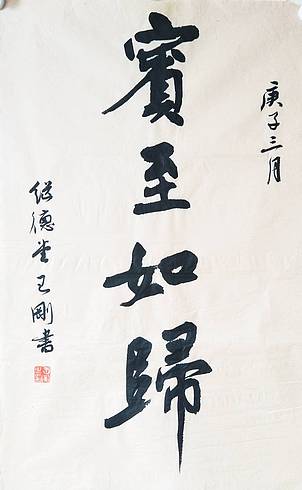 庚子三月
賓至如歸
德堂王剛書